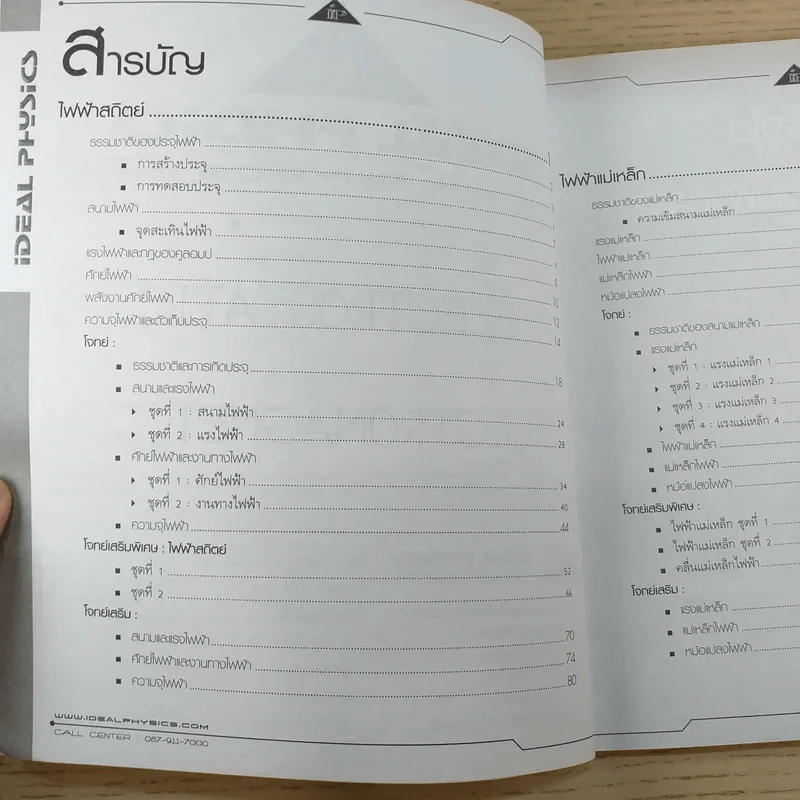 IDEAL PHYSICS
สารบัญ
ไฟฟ้าสถิตย์
ธรรมชาติของประจุไฟฟ้า 1
การสร้างประจุ 2
การทดสอบประจุ
สนามไฟฟ้า
จุดสะเทินไฟฟ้า 7
แรงไฟฟ้าและกฎของคูลอมบ์
ศักย์ไฟฟ้า 9
พลังงานศักย์ไฟฟ้า 10
ความจุไฟฟ้าและตัวเก็บประจุ 12
โจทย์ : 14
ธรรมชาติและการเกิดประจุ 18
สนามและแรงไฟฟ้า
ชุดที่ 1 : สนามไฟฟ้า 24
ชุดที่ 2 : แรงไฟฟ้า 28
ศักย์ไฟฟ้าและงานทางไฟฟ้า
ชุดที่ 1 : ศักย์ไฟฟ้า 34
ชุดที่ 2 : งานทางไฟฟ้า 40
ความจุไฟฟ้า 44
โจทย์เสริมพิเศษ : ไฟฟ้าสถิตย์
ชุดที่ 1 52
ชุดที่ 2 66
โจทย์เสริม :
สนามและแรงไฟฟ้า 70
ศักย์ไฟฟ้าและงานทางไฟฟ้า 74
ความจุไฟฟ้า 80
WWW.IDEALPHYSICS.COM
CALL CENTER : 087-911-7000
ไฟฟ้าแม่เหล็ก
ธรรมชาติของแม่เหล็ก
ความเข้มสนามแม่เหล็ก
แรงแม่เหล็ก
ไฟฟ้าแม่เหล็ก
แม่เหล็กไฟฟ้า
หม้อแปลงไฟฟ้า
โจทย์ :
ธรรมชาติของสนามแม่เหล็ก
แรงแม่เหล็ก
ชุดที่ 1 : แรงแม่เหล็ก 1
ชุดที่ 2 : แรงแม่เหล็ก 2
ชุดที่ 3 : แรงแม่เหล็ก 3
ชุดที่ 4 : แรงแม่เหล็ก 4
ไฟฟ้าแม่เหล็ก
แม่เหล็กไฟฟ้า
หม้อแปลงไฟฟ้า
โจทย์เสริมพิเศษ :
ไฟฟ้าแม่เหล็ก ชุดที่ 1
ไฟฟ้าแม่เหล็ก ชุดที่ 2
คลื่นแม่เหล็กไฟฟ้า
โจทย์เสริม :
แรงแม่เหล็ก
แม่เหล็กไฟฟ้า
หม้อแปลงไฟฟ้า